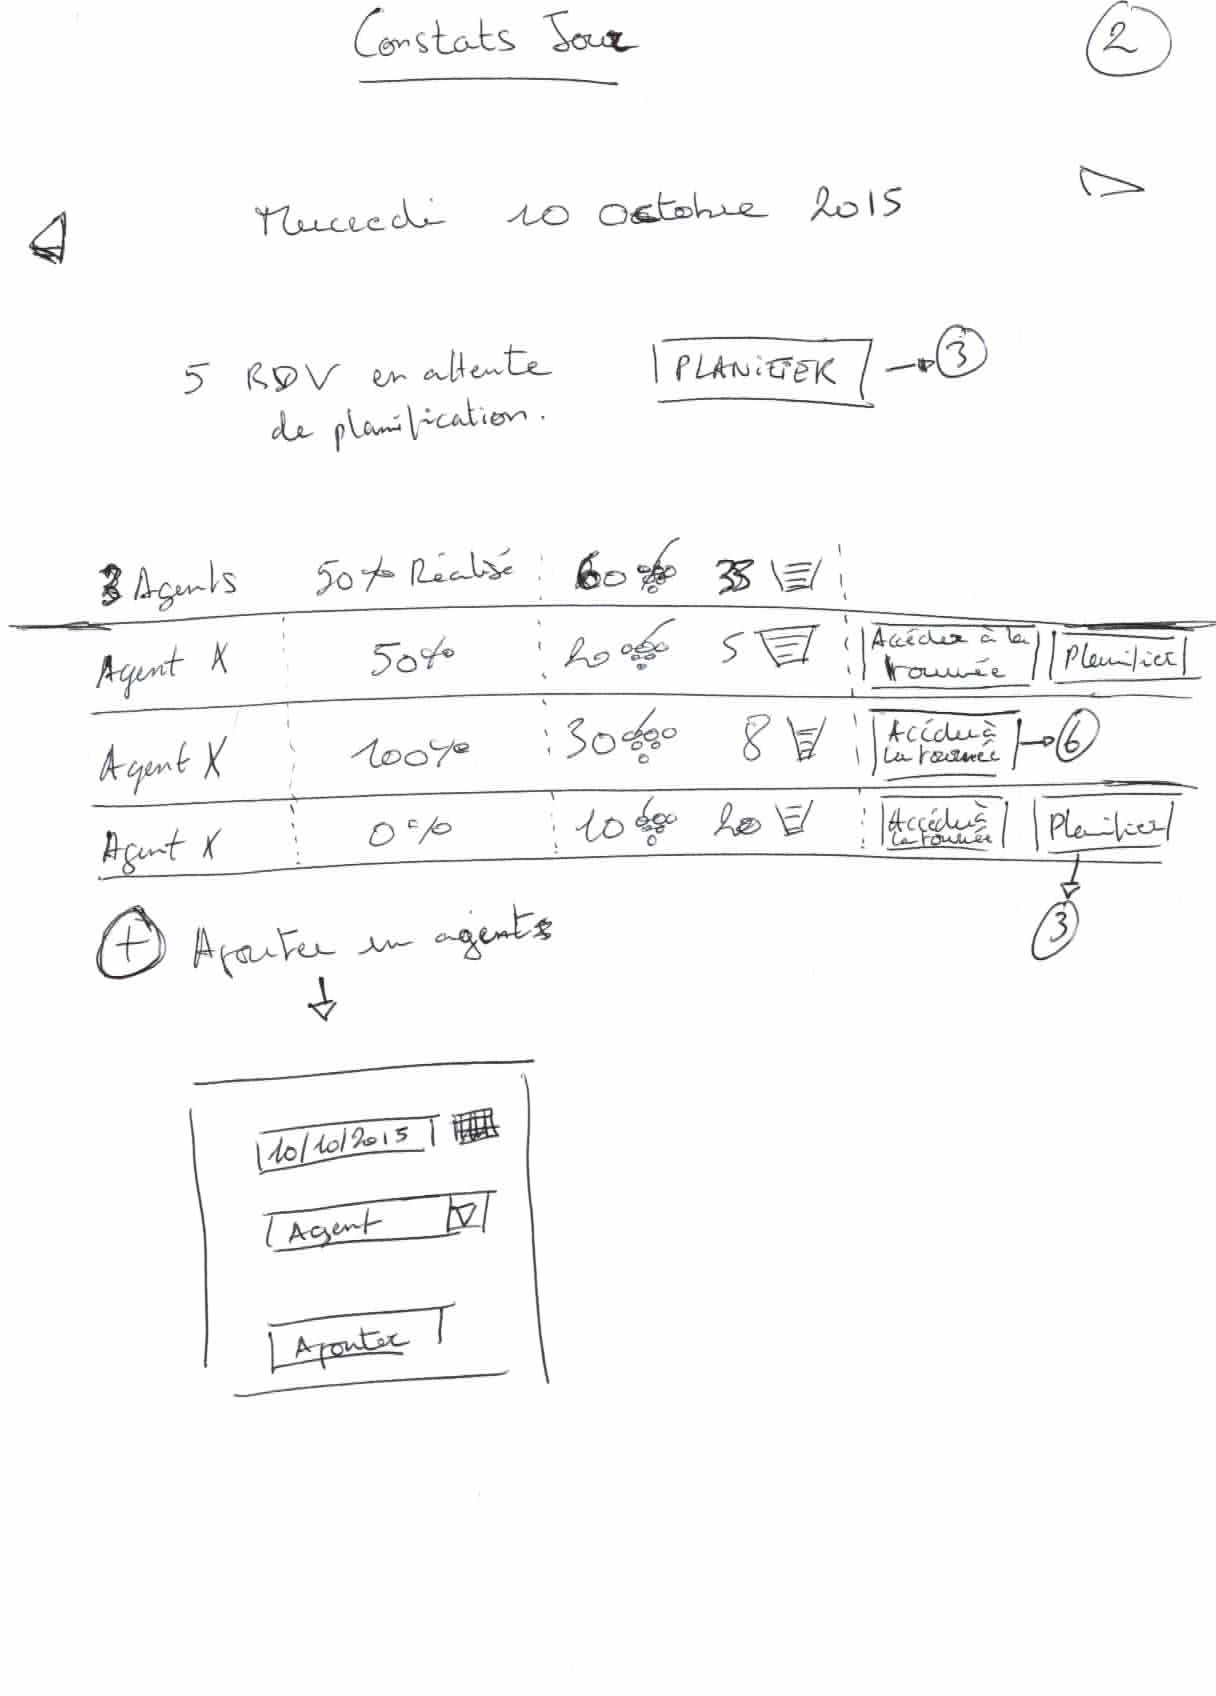 Constats Jour
2
Mercredi 10 Octobre 2015
5 RDV en attente
de planification.
PLANIFIER
3
3 Agents 50% Réalisé 60 33
Agent X 50% 20 5 Accéder à la tournée Planifier
Agent X 100% 30 8 Accéder à la tournée 6
Agent X 0% 10 20 Accéder à la tournée Planifier
3
+ Ajouter un agent
10/10/2015
Agent
Ajouter